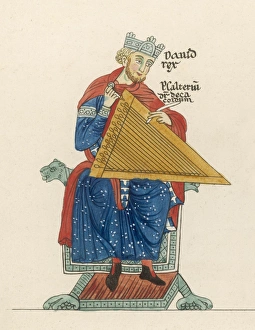 David
rex
Psalteriū
dr̄ deca
cordum